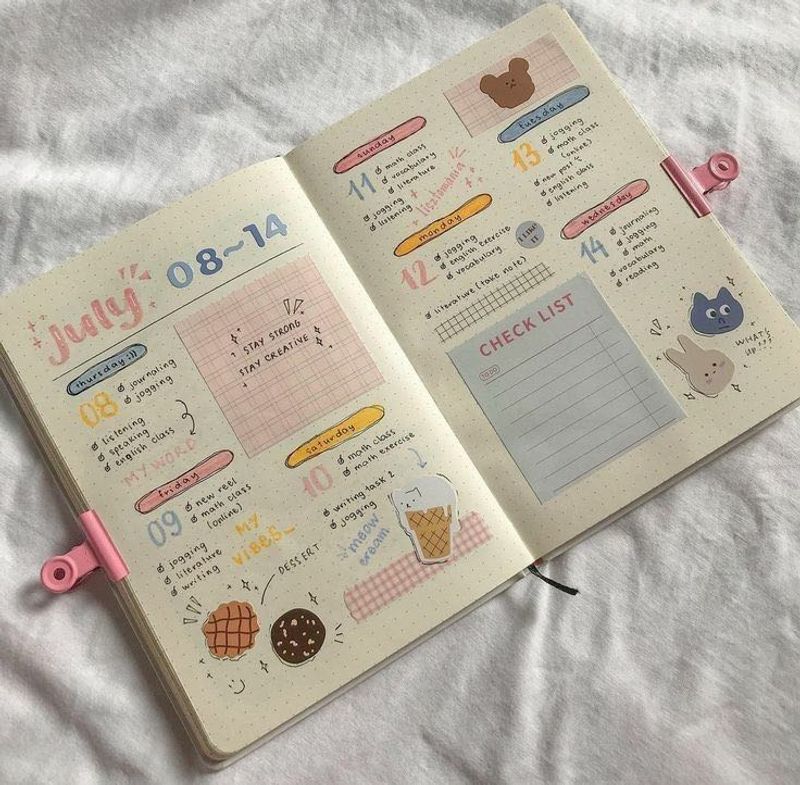 July 08~14
STAY STRONG
STAY CREATIVE
thursday :))
08
journaling
jogging
listening
speaking
english class
MY WORD
friday
09
new reel
math class
(online)
jogging
literature
writing
MY
VIBES_
DESSERT
saturday
10
math class
math exercise
writing task 2
jogging
meow
cream
sunday
11
math class
vocabulary
literature
jogging
listening
lisztomania
monday
12
jogging
english exercise
vocabulary
literature (take note)
tuesday
13
jogging
math class
(online)
new post
english class
listening
wednesday
14
journaling
jogging
math
vocabulary
reading
CHECK LIST
TO DO
WHAT'S
UP ???